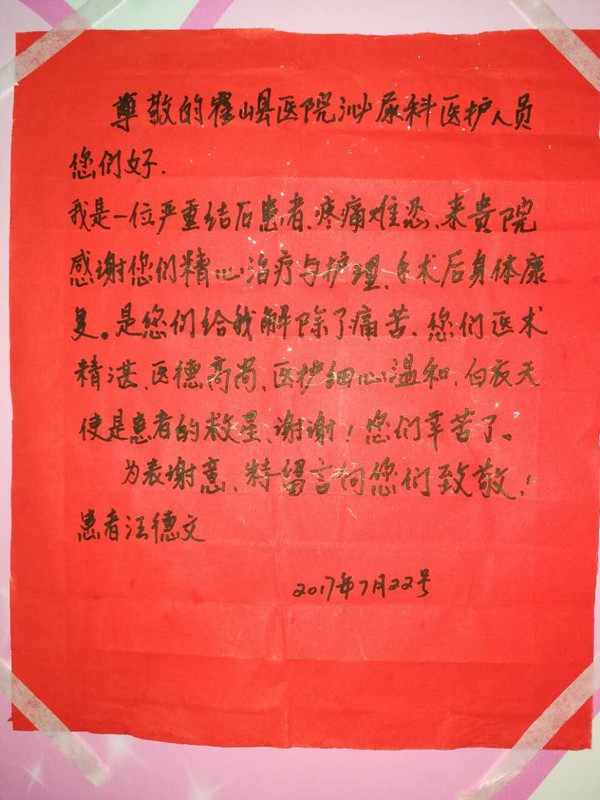 尊敬的霍山县医院泌尿科医护人员
您们好.
我是一位严重结石患者、疼痛难忍、来贵院
感谢您们精心治疗与护理、手术后身体康
复。是您们给我解除了痛苦、您们医术
精湛、医德高尚、医护细心温和、白衣天
使是患者的救星、谢谢！您们辛苦了。
为表谢意、特留言向您们致敬！
患者汪德文
2017年7月22号